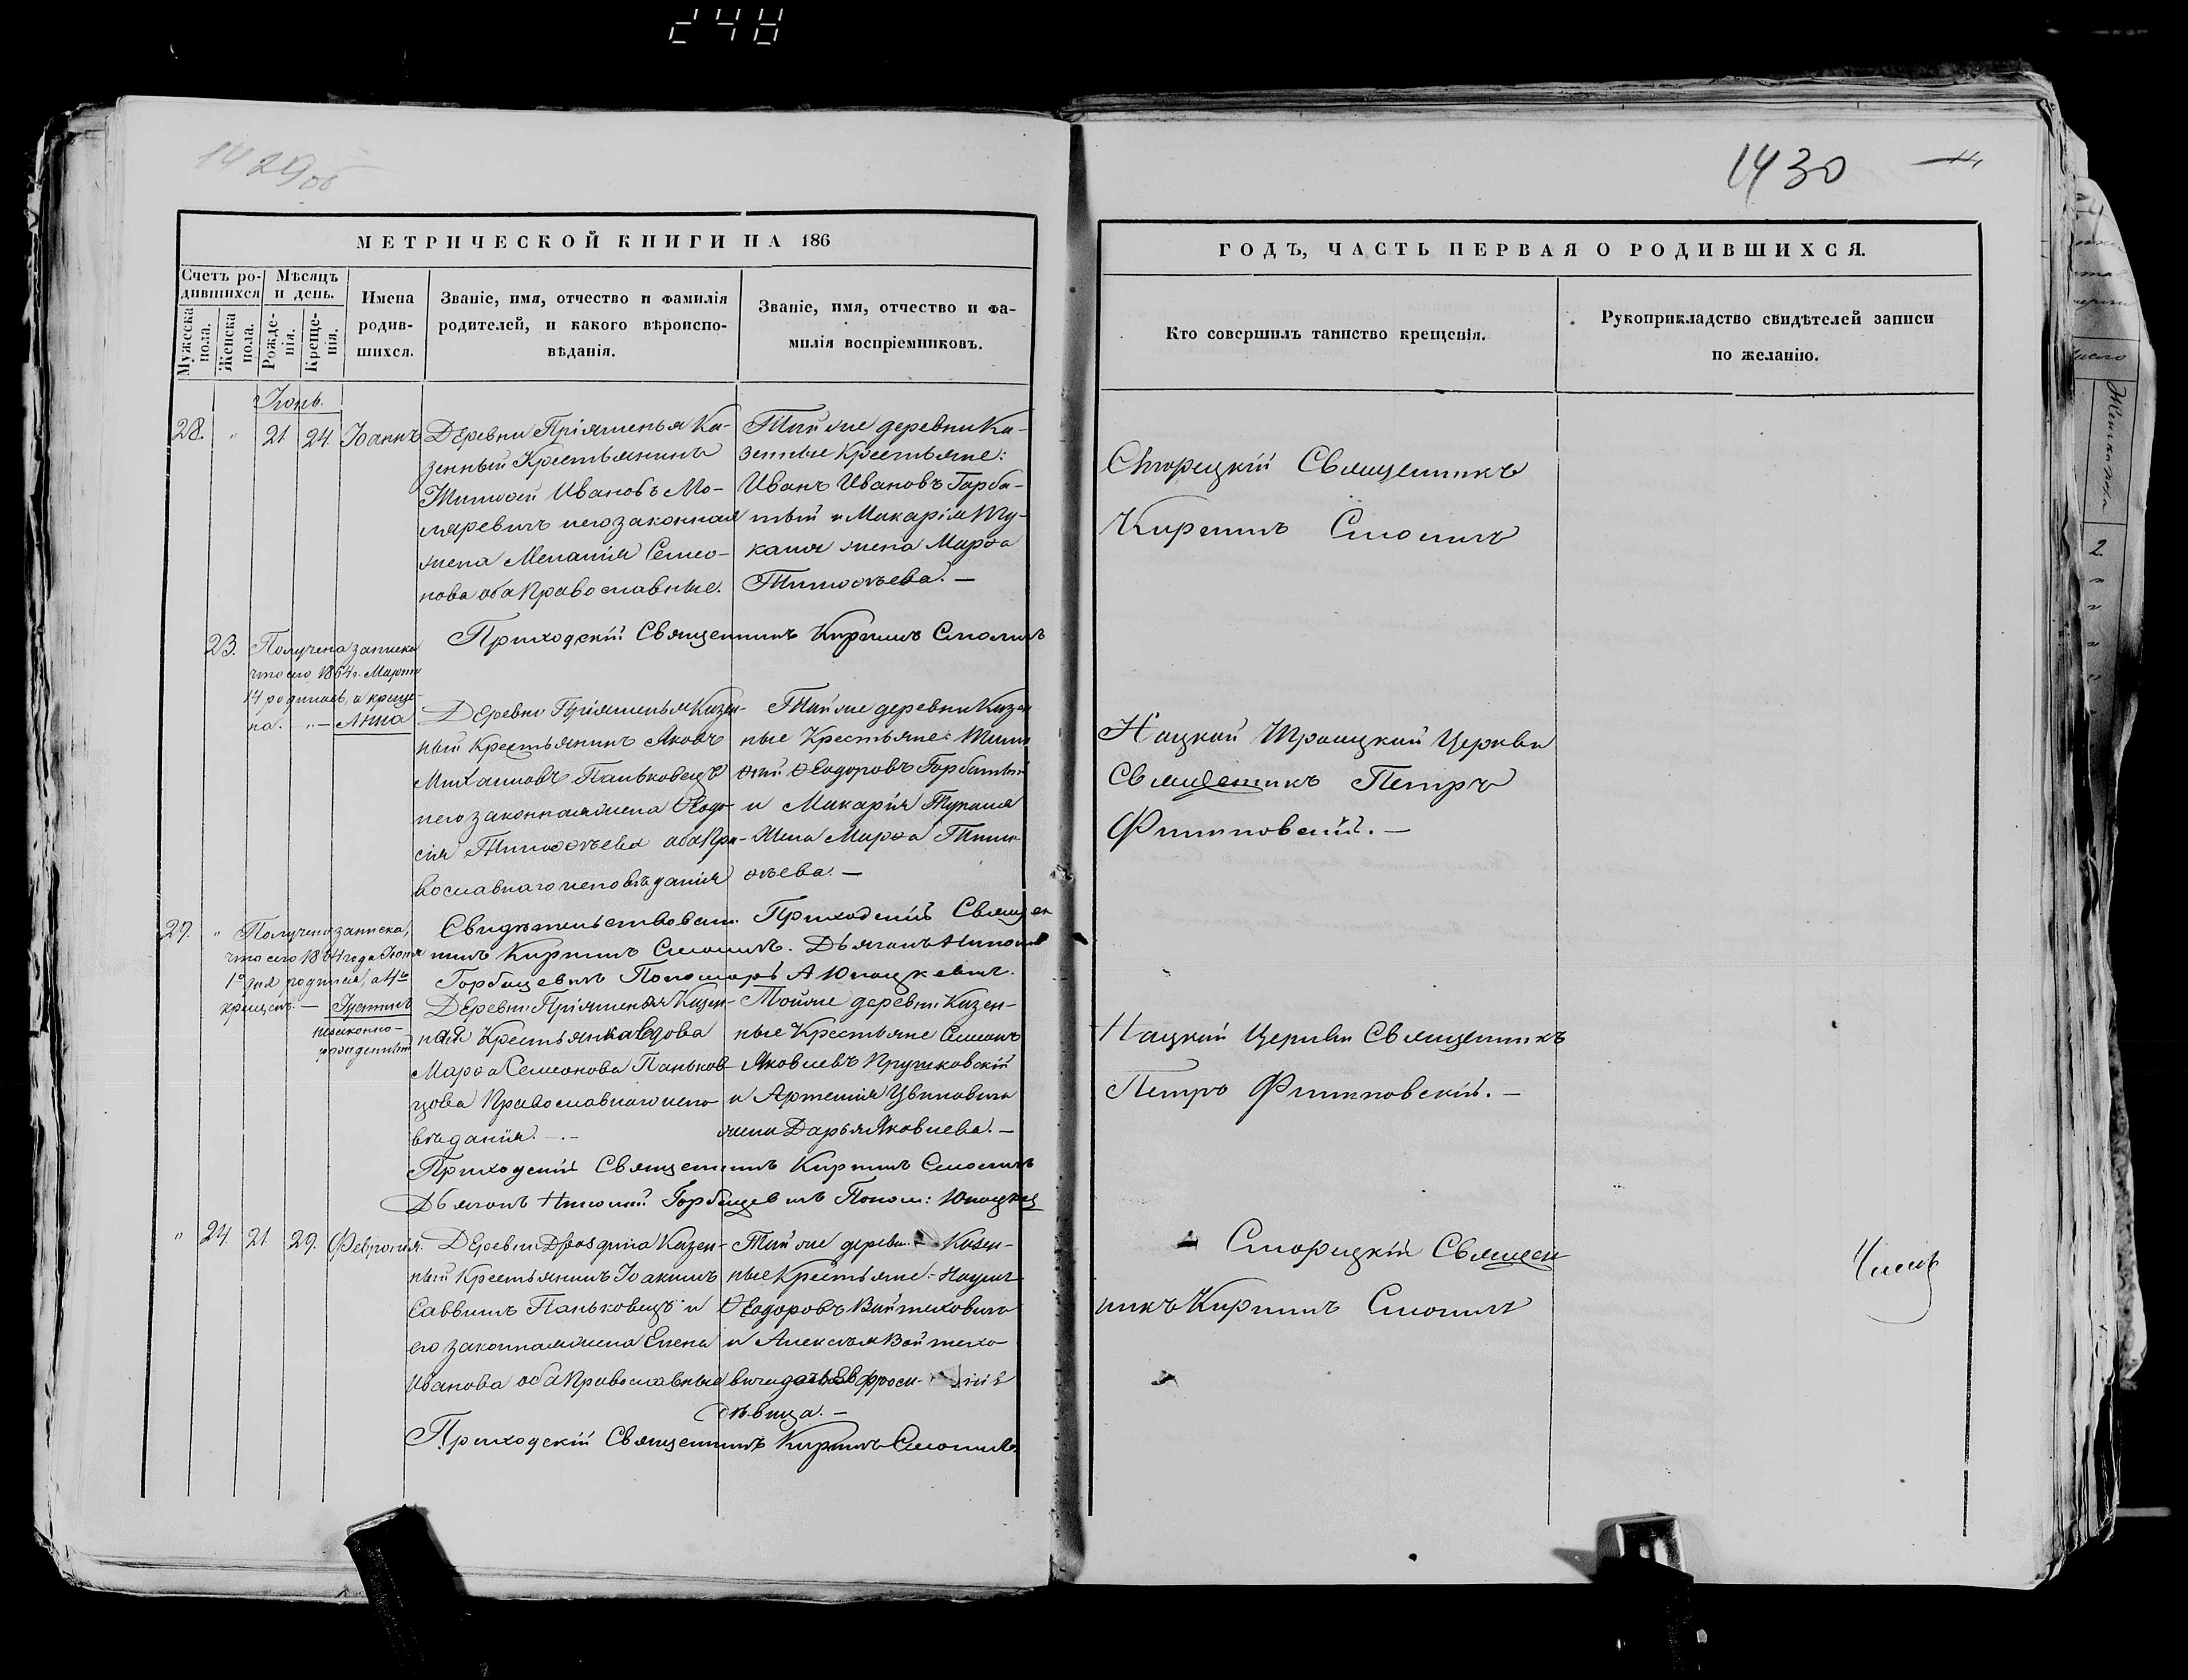 248
1429об
1430
МЕТРИЧЕСКОЙ КНИГИ НА 186
ГОДЪ, ЧАСТЬ ПЕРВАЯ О РОДИВШИХСЯ.
Счетъ ро-
дившихся
Мѣсяцъ
и день.
Мужеска
пола.
Женска
пола.
Рожде-
нія.
Креще-
нія.
Имена
родив-
шихся.
Званіе, имя, отчество и фамилія
родителей, и какого вѣроиспо-
вѣданія.
Званіе, имя, отчество и фа-
милія воспріемниковъ.
Кто совершилъ таинство крещенія.
Рукоприкладство свидѣтелей записи
по желанію.
Іюнь.
28. " 21 24 Іоаннъ
Деревни Пріяменья Ка-
зенный Крестьянинъ
Тимоѳей Ивановъ Мо-
ляревичъ и его законная
жена Меланія Семео-
нова оба Православные.
Той же деревни Ка-
зенные Крестьяне:
Иванъ Ивановъ Горба-
тый и Макарія Ту-
жена Марѳа
Тимоѳѣева. —
Священникъ
Кириллъ Смоличъ
Приходскій Священникъ Кириллъ Смоличъ
23. Получена записка
что сего 1864 г. Марта
14 родилась, а креще-
на. " — Анна
Деревни Пріяменья Казен-
ный Крестьянинъ Яковъ
Михаиловъ Паньковецъ
и его законная жена Ѳеодо-
сія Тимоѳѣева оба Пра-
вославнаго исповѣданія
Той же деревни Казен
ные Крестьяне: Тимо
ѳей Ѳеодоровъ Горбатый
и Макарія
жена Марѳа Тимо-
ѳѣева. —
Нацкой Троицкой Церкви
Священникъ Петръ
Филипповскій. —
Свидѣтельствовали Приходскій Священ
никъ Кириллъ Смоличъ. Дьячокъ Николай
Горбацевичъ Пономарь А Юноцкевичъ.
29. " Получена записка,
что сего 1864 года Іюня
1го дня родился, а 4го
крещенъ. — Іустинъ
незаконно-
рожденный
Деревни Пріяменья Казен-
ная Крестьянка вдова
Марѳа Семеонова Паньков-
цова Православнаго испо
вѣданія. —.—
Той же деревни Казен-
ные Крестьяне Семеонъ
Яковлевъ Прушковскій
и Артемія Цвиковича
жена Дарья Яковлева. —
Нацкой Церкви Священникъ
Петръ Филипповскій. —
Приходскій Священникъ Кириллъ Смоличъ
Дьячокъ Николай Горбацевичъ Поном: Юноцкев
" 24 21 29. Февронія.
Деревни Дроздина Казен-
ный Крестьянинъ Іоакимъ
Саввинъ Паньковецъ и
его законная жена Елена
Иванова оба Православные
Той же деревни Казен-
ные Крестьяне: Наумъ
Ѳеодоровъ Войтеховичъ
и Алексѣя Войтехо
вича дочь Ефроси- нія
дѣвица. —
Священ
никъ Кириллъ Смоличъ
Приходскій Священникъ Кириллъ Смоличъ